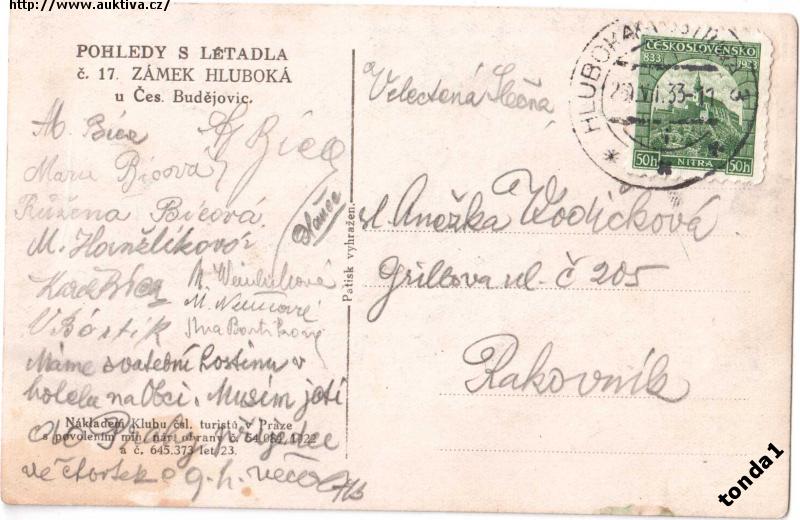 http://www.auktiva.cz/
POHLEDY S LETADLA
č. 17. ZÁMEK HLUBOKÁ
u Čes. Budějovic.
M Bíca
A Bíca
Marie Bícová
Růžena Bícová
M. Hanžlíková
Karel Bíca
M. Neumová
V Bartík
Máme svatební hostinu v
hotelu na Obci. Musím jeti
do Prahy, přijedu
ve čtvrtek o 9. h. večer
Nákladem Klubu čsl. turistů v Praze
s povolením min. nár. obrany č. 64.082, 1922
a č. 645.373 let 23.
Patisk vyhražen.
Velectěná slečna
sl. Anežka Vodičková
Grillova ul. č 205
Rakovník
HLUBOKÁ
33-11
ČESKOSLOVENSKO
833 1933
50h NITRA 50h
tonda1